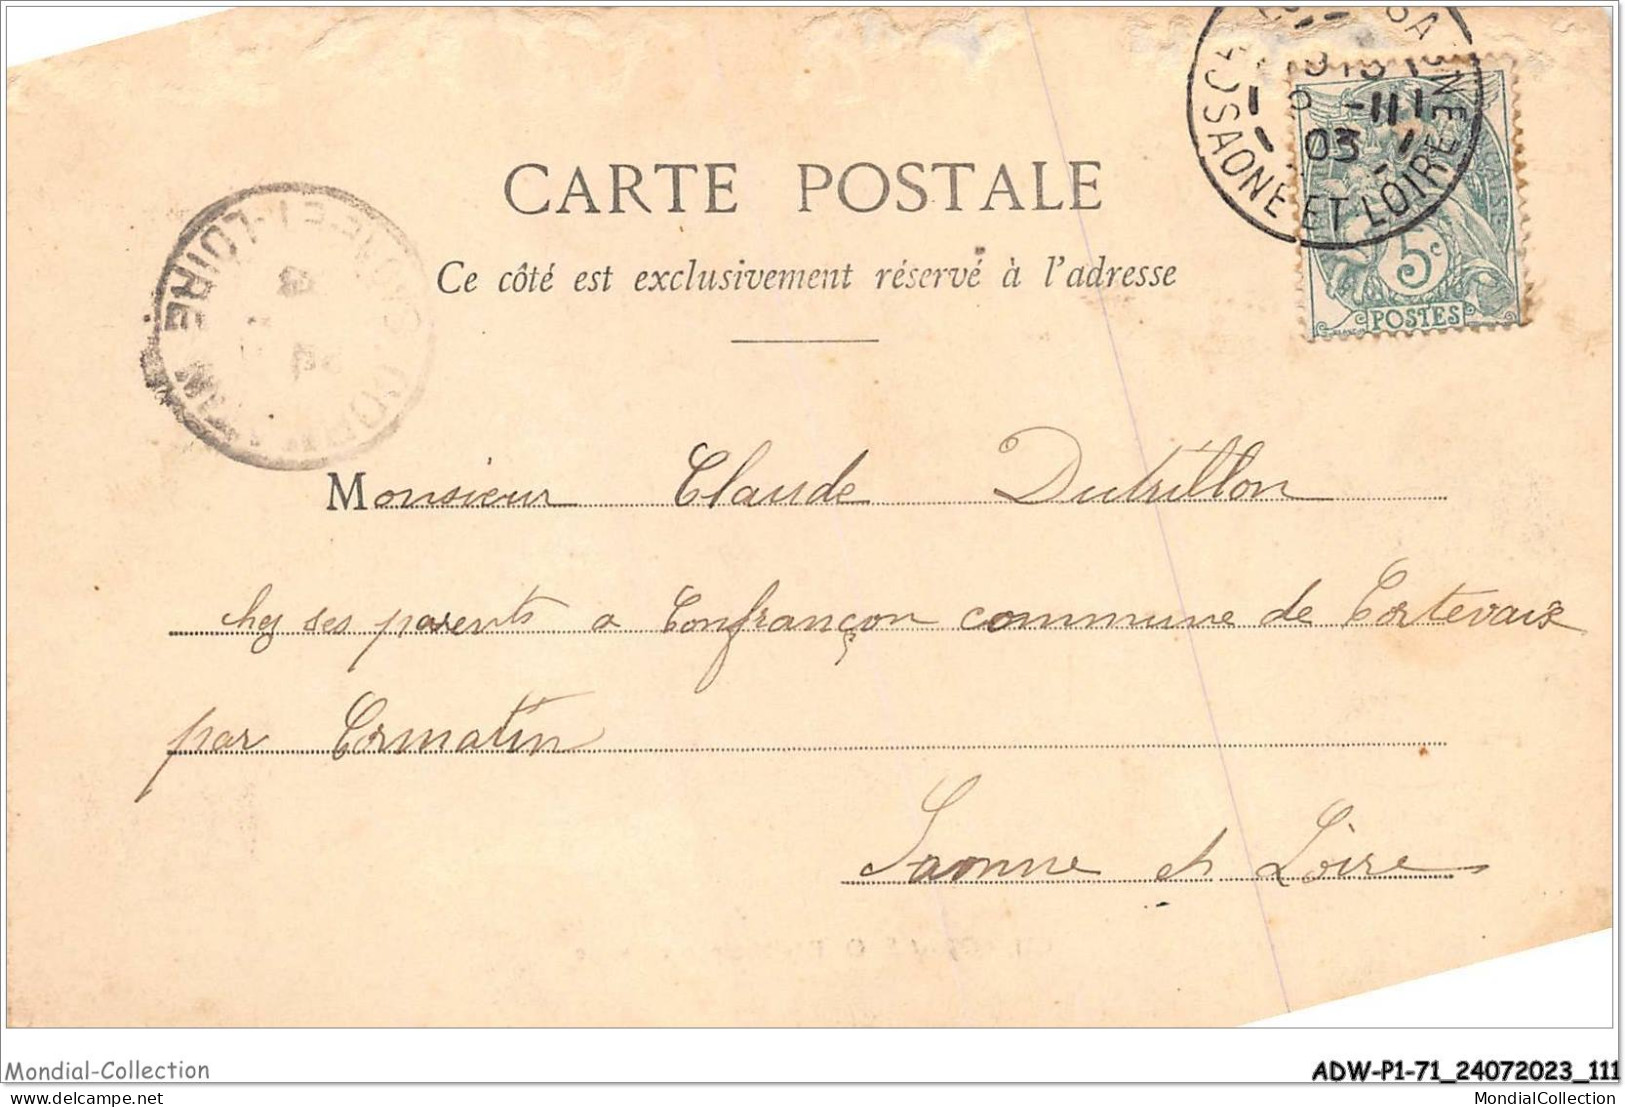 SAONE ET LOIRE
03
5c
POSTES
CARTE POSTALE
Ce côté est exclusivement réservé à l'adresse
Monsieur Claude Dutrillon
chez ses parents a Confrançon commune de Cortevaix
par Cormatin
Saonne et Loire
Mondial-Collection
ADW-P1-71_24072023_111
MondialCollection